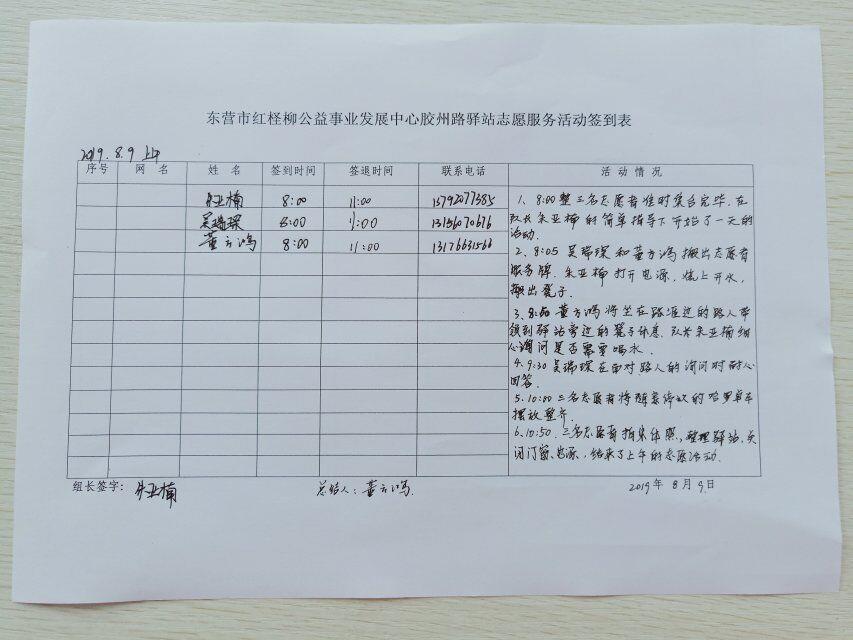 东营市红柽柳公益事业发展中心胶州路驿站志愿服务活动签到表
2019.8.9 上午
序号 网 名 姓 名 签到时间 签退时间 联系电话 活 动 情 况
朱亚楠 8:00 11:00 13792077385
吴瑞琛 8:00 11:00
董方鸿 8:00 11:00 13176631566
1、8:00整三名志愿者准时集合完毕.在
队长朱亚楠的简单指导下开始了一天的
活动.
2、8:05 吴瑞琛和董方鸿搬出志愿者
服务牌.朱亚楠打开电源,烧上开水,
搬出凳子.
3、8:50 董方鸿将坐在路涯边的路人带
领到驿站旁边的凳子休息.队长朱亚楠细
心询问是否需要喝水.
4、9:30 吴瑞琛在面对路人的询问时耐心
回答.
5、10:00 三名志愿者将随意停放的哈罗单车
摆放整齐.
6、10:50.三名志愿者拍集体照,整理驿站,关
闭门窗、电源,结束了上午的志愿活动.
组长签字: 朱亚楠 总结人:董方鸿. 2019年 8月 9日